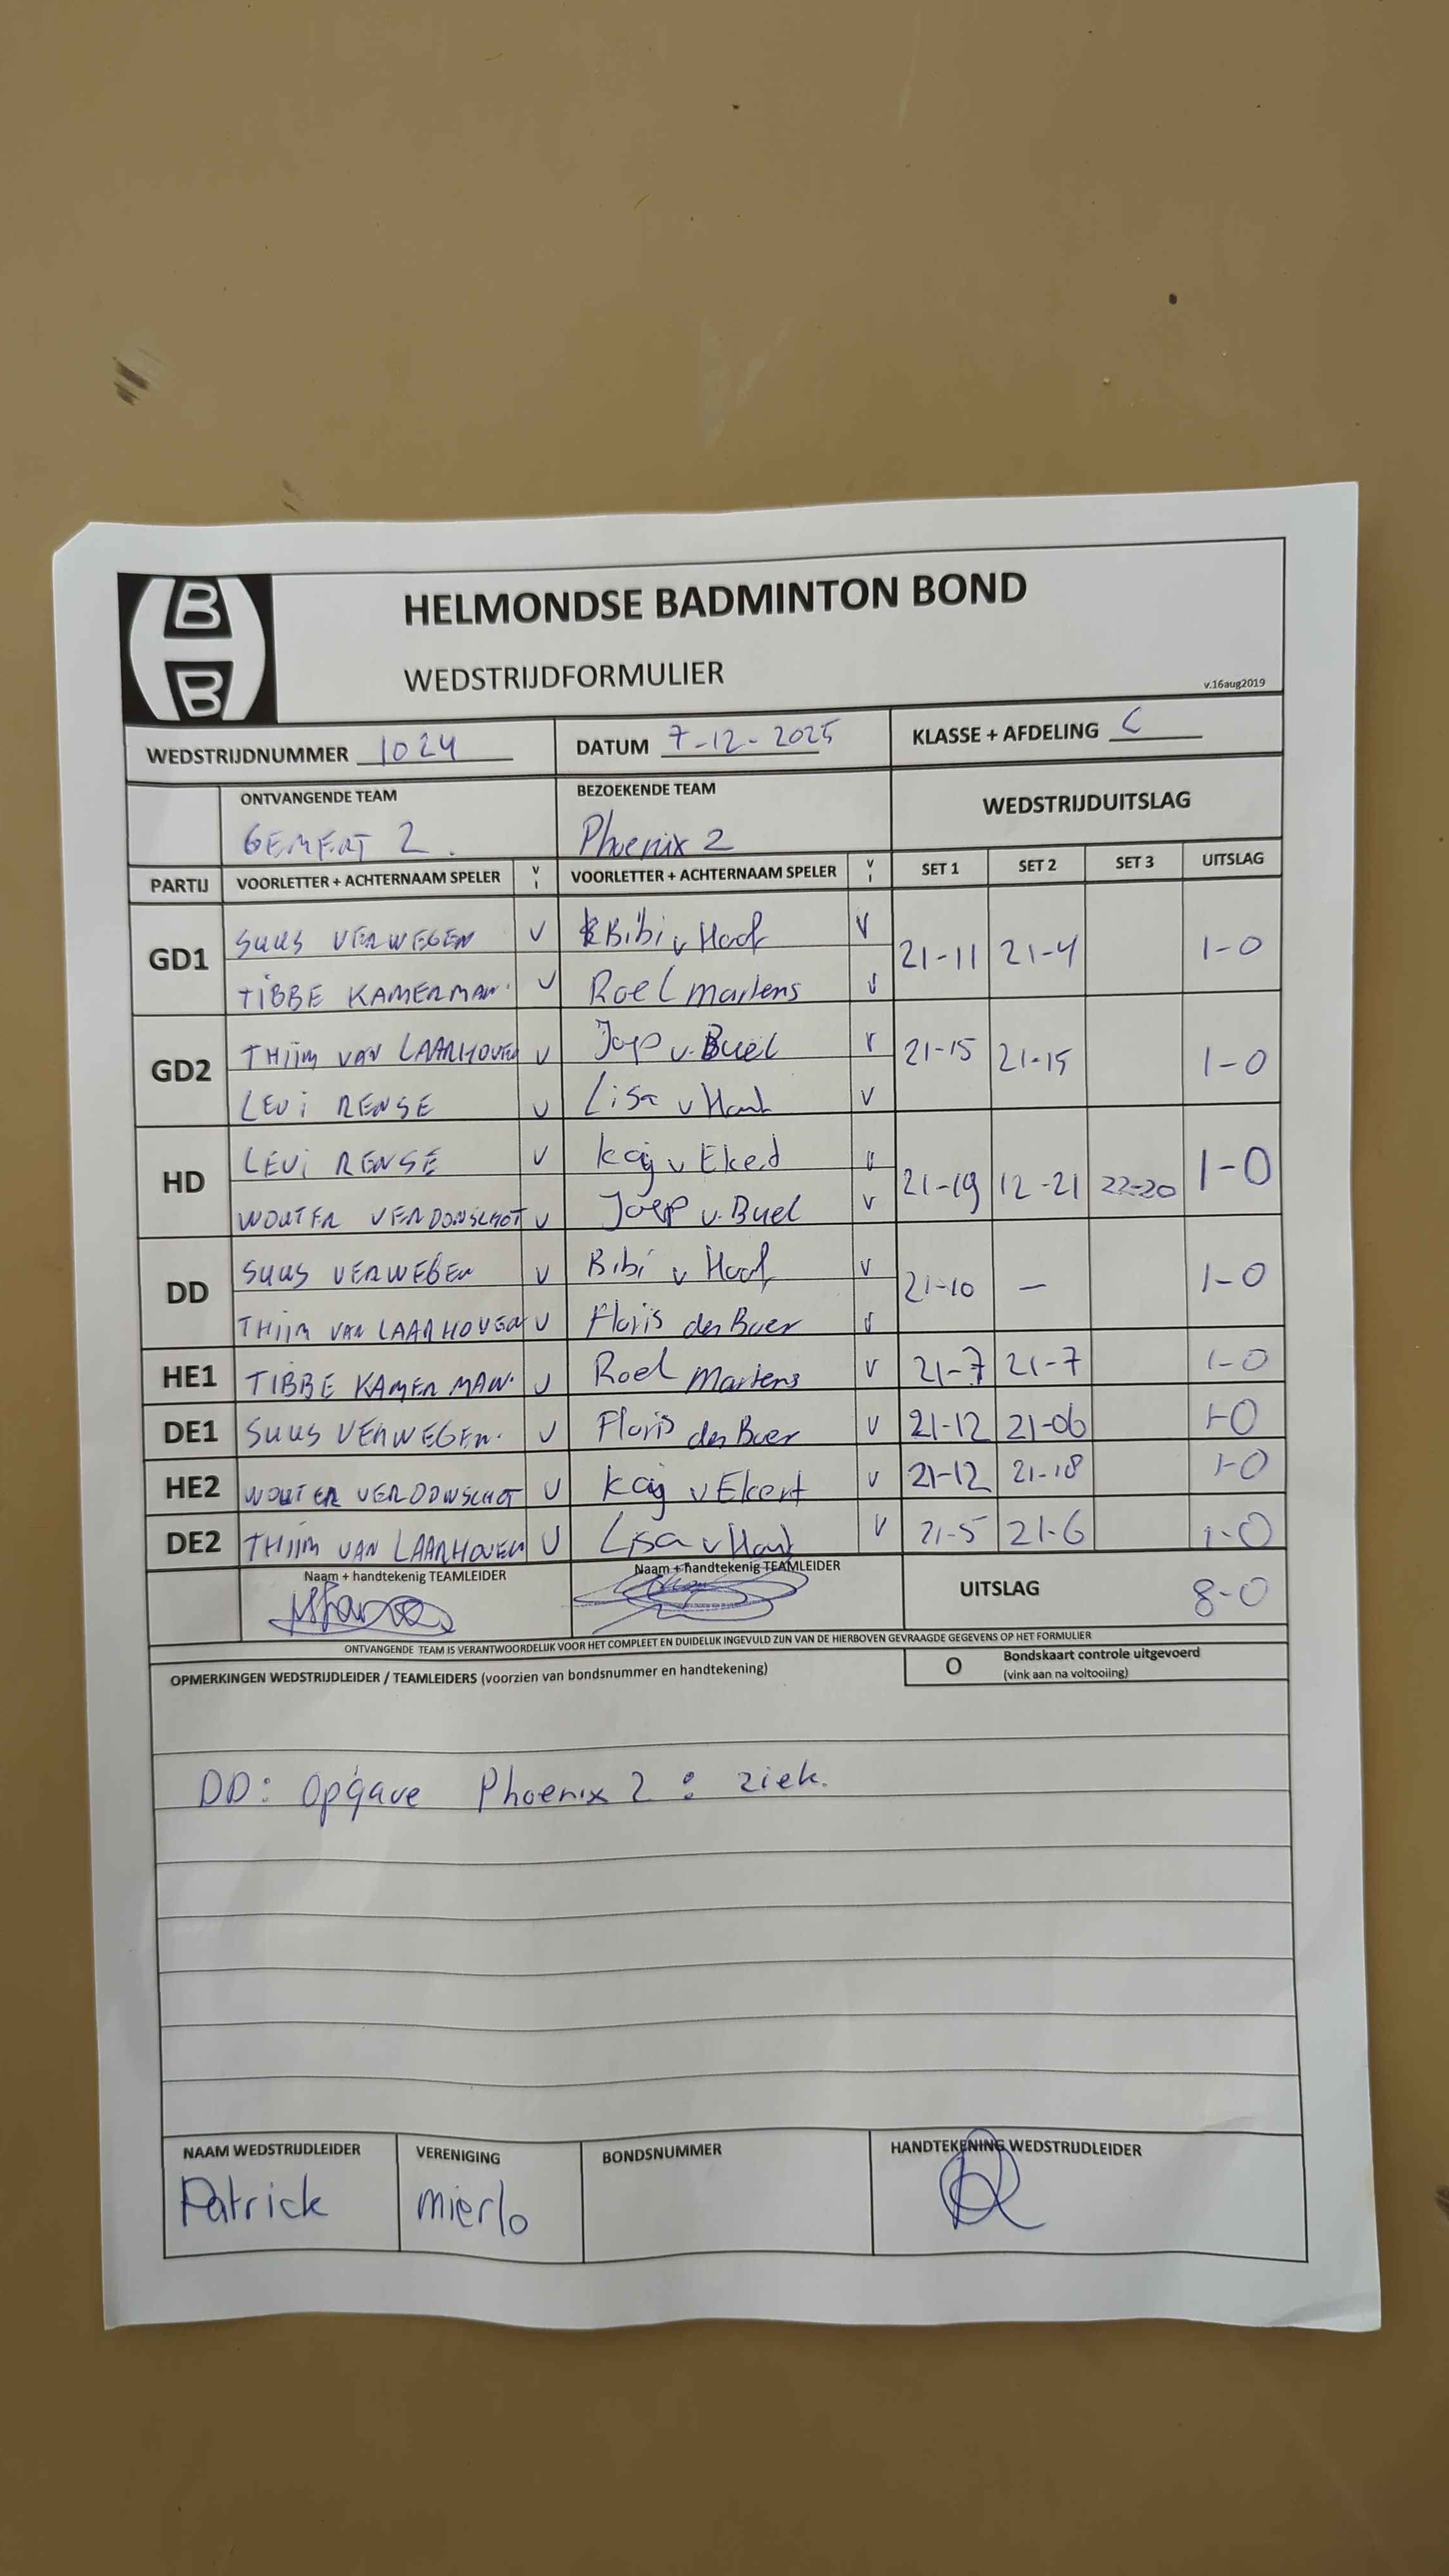 B
B
HELMONDSE BADMINTON BOND
WEDSTRIJDFORMULIER
v.16aug2019
WEDSTRIJDNUMMER 1024 DATUM 7-12-2025 KLASSE + AFDELING C
ONTVANGENDE TEAM BEZOEKENDE TEAM WEDSTRIJDUITSLAG
GEMERT 2. Phoenix 2
PARTIJ VOORLETTER + ACHTERNAAM SPELER V I VOORLETTER + ACHTERNAAM SPELER V I SET 1 SET 2 SET 3 UITSLAG
GD1 SUUS VERWEGEN V Bibi v Hoof V 21-11 21-4 1-0
TIBBE KAMERMAN. V Roel Martens V
GD2 THIJM VAN LAARHOVEN V Joep v. Buel V 21-15 21-15 1-0
LEVI RENSE V Lisa v V
HD LEVI RENSE V Kaij v Ekert V 21-19 12-21 22-20 1-0
WOUTER VERDONSCHOT V Joep v. Buel V
DD SUUS VERWEGEN V Bibi v Hoof V 21-10 — 1-0
THIJM VAN LAARHOVEN V Floris den Boer V
HE1 TIBBE KAMERMAN. V Roel Martens V 21-7 21-7 1-0
DE1 SUUS VERWEGEN. V Floris den Boer V 21-12 21-06 1-0
HE2 WOUTER VERDONSCHOT V Kaij v Ekert V 21-12 21-18 1-0
DE2 THIJM VAN LAARHOVEN V Lisa v V 21-5 21-6 1-0
Naam + handtekenig TEAMLEIDER Naam + handtekenig TEAMLEIDER UITSLAG 8-0
ONTVANGENDE TEAM IS VERANTWOORDELIJK VOOR HET COMPLEET EN DUIDELIJK INGEVULD ZIJN VAN DE HIERBOVEN GEVRAAGDE GEGEVENS OP HET FORMULIER
OPMERKINGEN WEDSTRIJDLEIDER / TEAMLEIDERS (voorzien van bondsnummer en handtekening) O Bondskaart controle uitgevoerd
(vink aan na voltooiing)
DD: Opgave Phoenix 2 : ziek.
NAAM WEDSTRIJDLEIDER VERENIGING BONDSNUMMER HANDTEKENING WEDSTRIJDLEIDER
Patrick mierlo